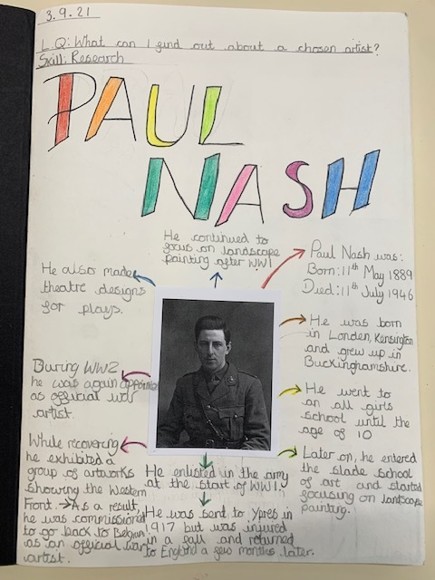 3.9.21
L.Q: What can I find out about a chosen artist?
Skill: Research
PAUL
NASH
He continued to
focus on landscape
painting after WW1.
Paul Nash was:
Born: 11th May 1889
Died: 11th July 1946
He also made
theatre designs
for plays.
He was born
in London, Kensington
and grew up in
Buckinghamshire.
During WW2
he was again appointed
as official war
artist.
He went to
an all girls
school until the
age of 10
While recovering
he exhibited a
group of artworks
showing the Western
Front. → As a result,
he was commissioned
to go back to Belgium
as an official war
artist.
He enlisted in the army
at the start of WW1.
He was sent to Ypres in
1917 but was injured
in a fall and returned
to England a few months later.
Later on, he entered
the slade school
of art and started
focusing on landscape
painting.